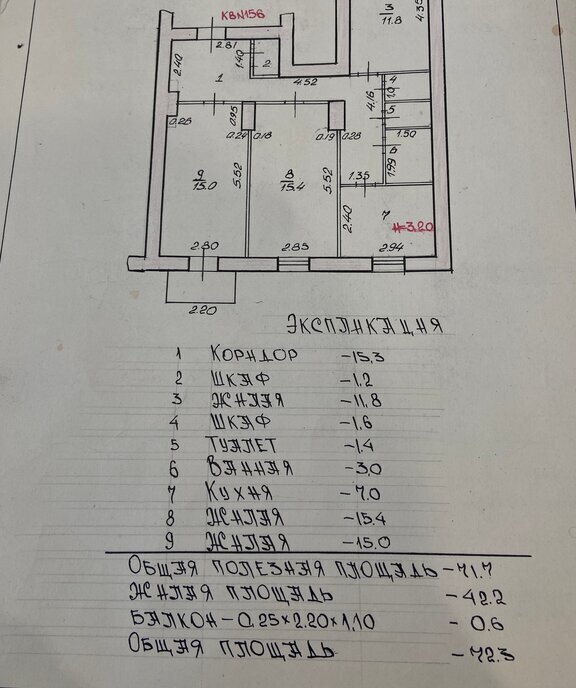 КВN156
3
11.8
4.35
2.81
2.40
1.40
2
1
4.52
4
1.0
4.16
5
0.26
0.95
0.24
0.18
0.19
0.28
1.50
6
1.99
9
15.0
5.52
8
15.4
5.52
1.35
7
2.40
H=3.20
2.80
2.85
2.94
2.20
ЭКСПЛИКАЦИЯ
1 КОРИДОР -15.3
2 ШКАФ -1.2
3 ЖИЛАЯ -11.8
4 ШКАФ -1.6
5 ТУАЛЕТ -1.4
6 ВАННАЯ -3.0
7 КУХНЯ -7.0
8 ЖИЛАЯ -15.4
9 ЖИЛАЯ -15.0
ОБЩАЯ ПОЛЕЗНАЯ ПЛОЩАДЬ -71.7
ЖИЛАЯ ПЛОЩАДЬ -42.2
БАЛКОН-0.25×2.20×1.10 - 0.6
ОБЩАЯ ПЛОЩАДЬ -72.3